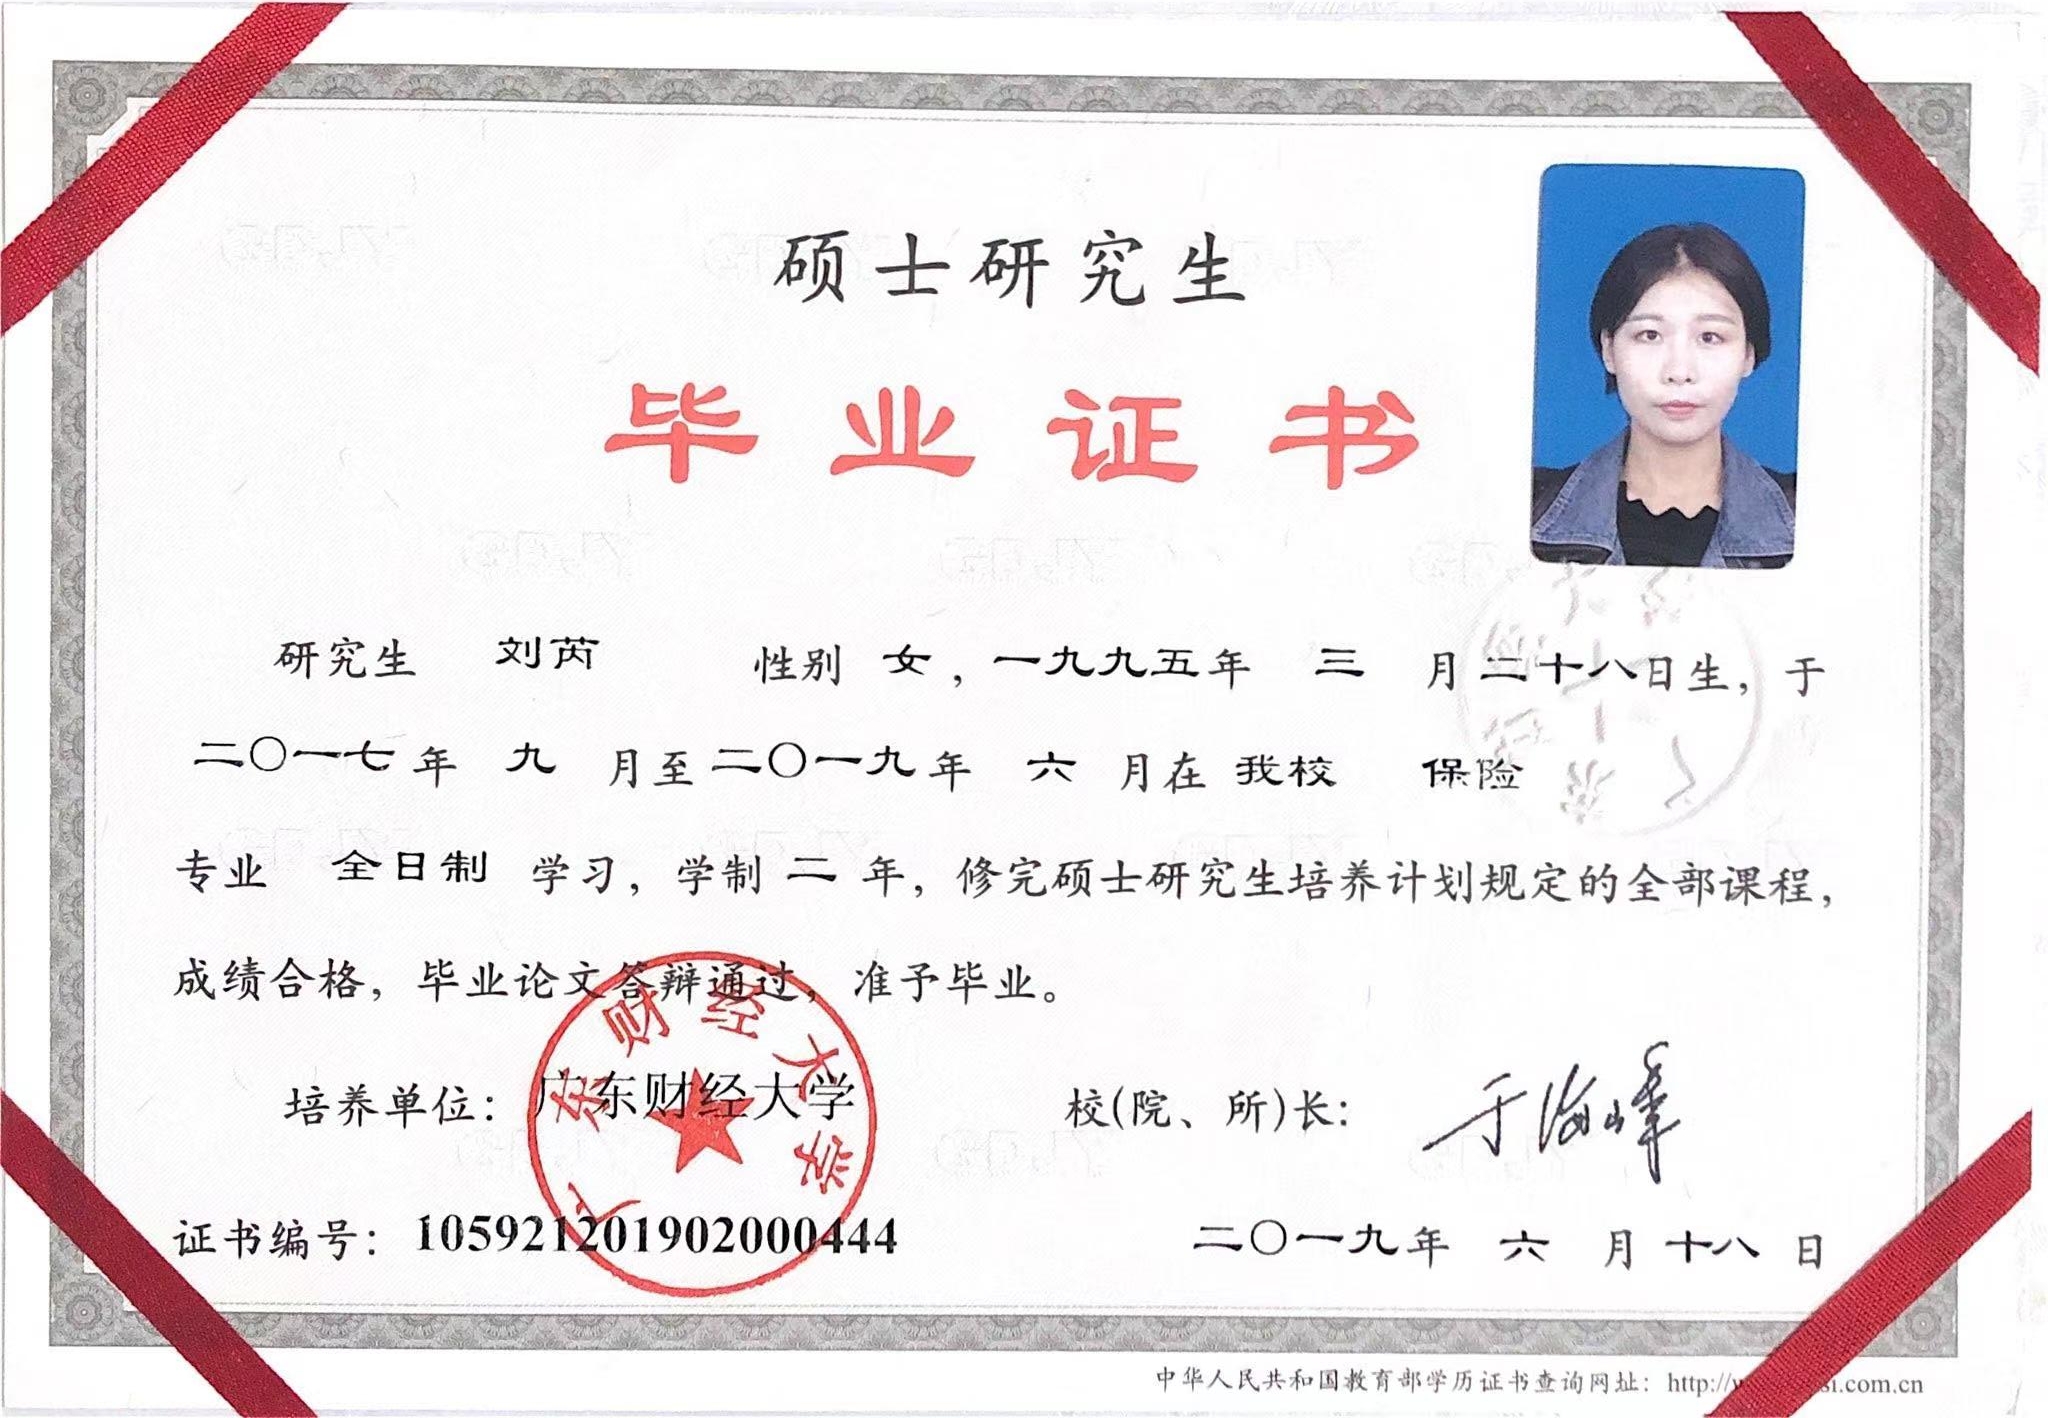 硕士研究生
毕业证书
研究生 刘芮 性别 女，一九九五年 三 月 二十八日生，于
二〇一七年 九 月至二〇一九年 六 月在 我校 保险
专业 全日制 学习，学制 二 年，修完硕士研究生培养计划规定的全部课程，
成绩合格，毕业论文答辩通过，准予毕业。
广东财经大学
培养单位：广东财经大学 校(院、所)长：于海峰
证书编号：105921201902000444 二〇一九年 六 月 十八 日
中华人民共和国教育部学历证书查询网址：http://
si.com.cn